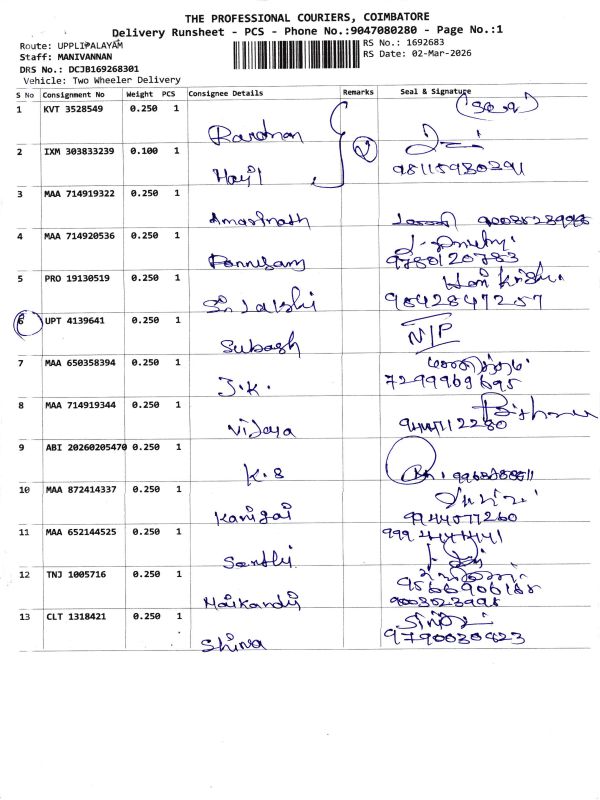 THE PROFESSIONAL COURIERS, COIMBATORE
Delivery Runsheet - PCS - Phone No.:9047080280 - Page No.:1
Route: UPPLIPALAYAM
RS No.: 1692683
Staff: MANIVANNAN
RS Date: 02-Mar-2026
DRS No.: DCJB169268301
Vehicle: Two Wheeler Delivery
S No Consignment No Weight PCS Consignee Details Remarks Seal & Signature
1 KVT 3528549 0.250 1
2 IXM 303833239 0.100 1 Hayil
2
3 MAA 714919322 0.250 1 Amarnath
4 MAA 714920536 0.250 1 Ponnusamy
9780120783
5 PRO 19130519 0.250 1 Sri Lakshi Hari Krish
9842847257
6 UPT 4139641 0.250 1 Subash N/P
7 MAA 650358394 0.250 1 J.K.
7299969695
8 MAA 714919344 0.250 1 Vijaya
9444112280
9 ABI 20260205470 0.250 1 K.S
10 MAA 872414337 0.250 1 Kanigai
9944077260
11 MAA 652144525 0.250 1 Santhi
12 TNJ 1005716 0.250 1 Maikandy
9566906168
9003523998
13 CLT 1318421 0.250 1 Shiva
9790030823